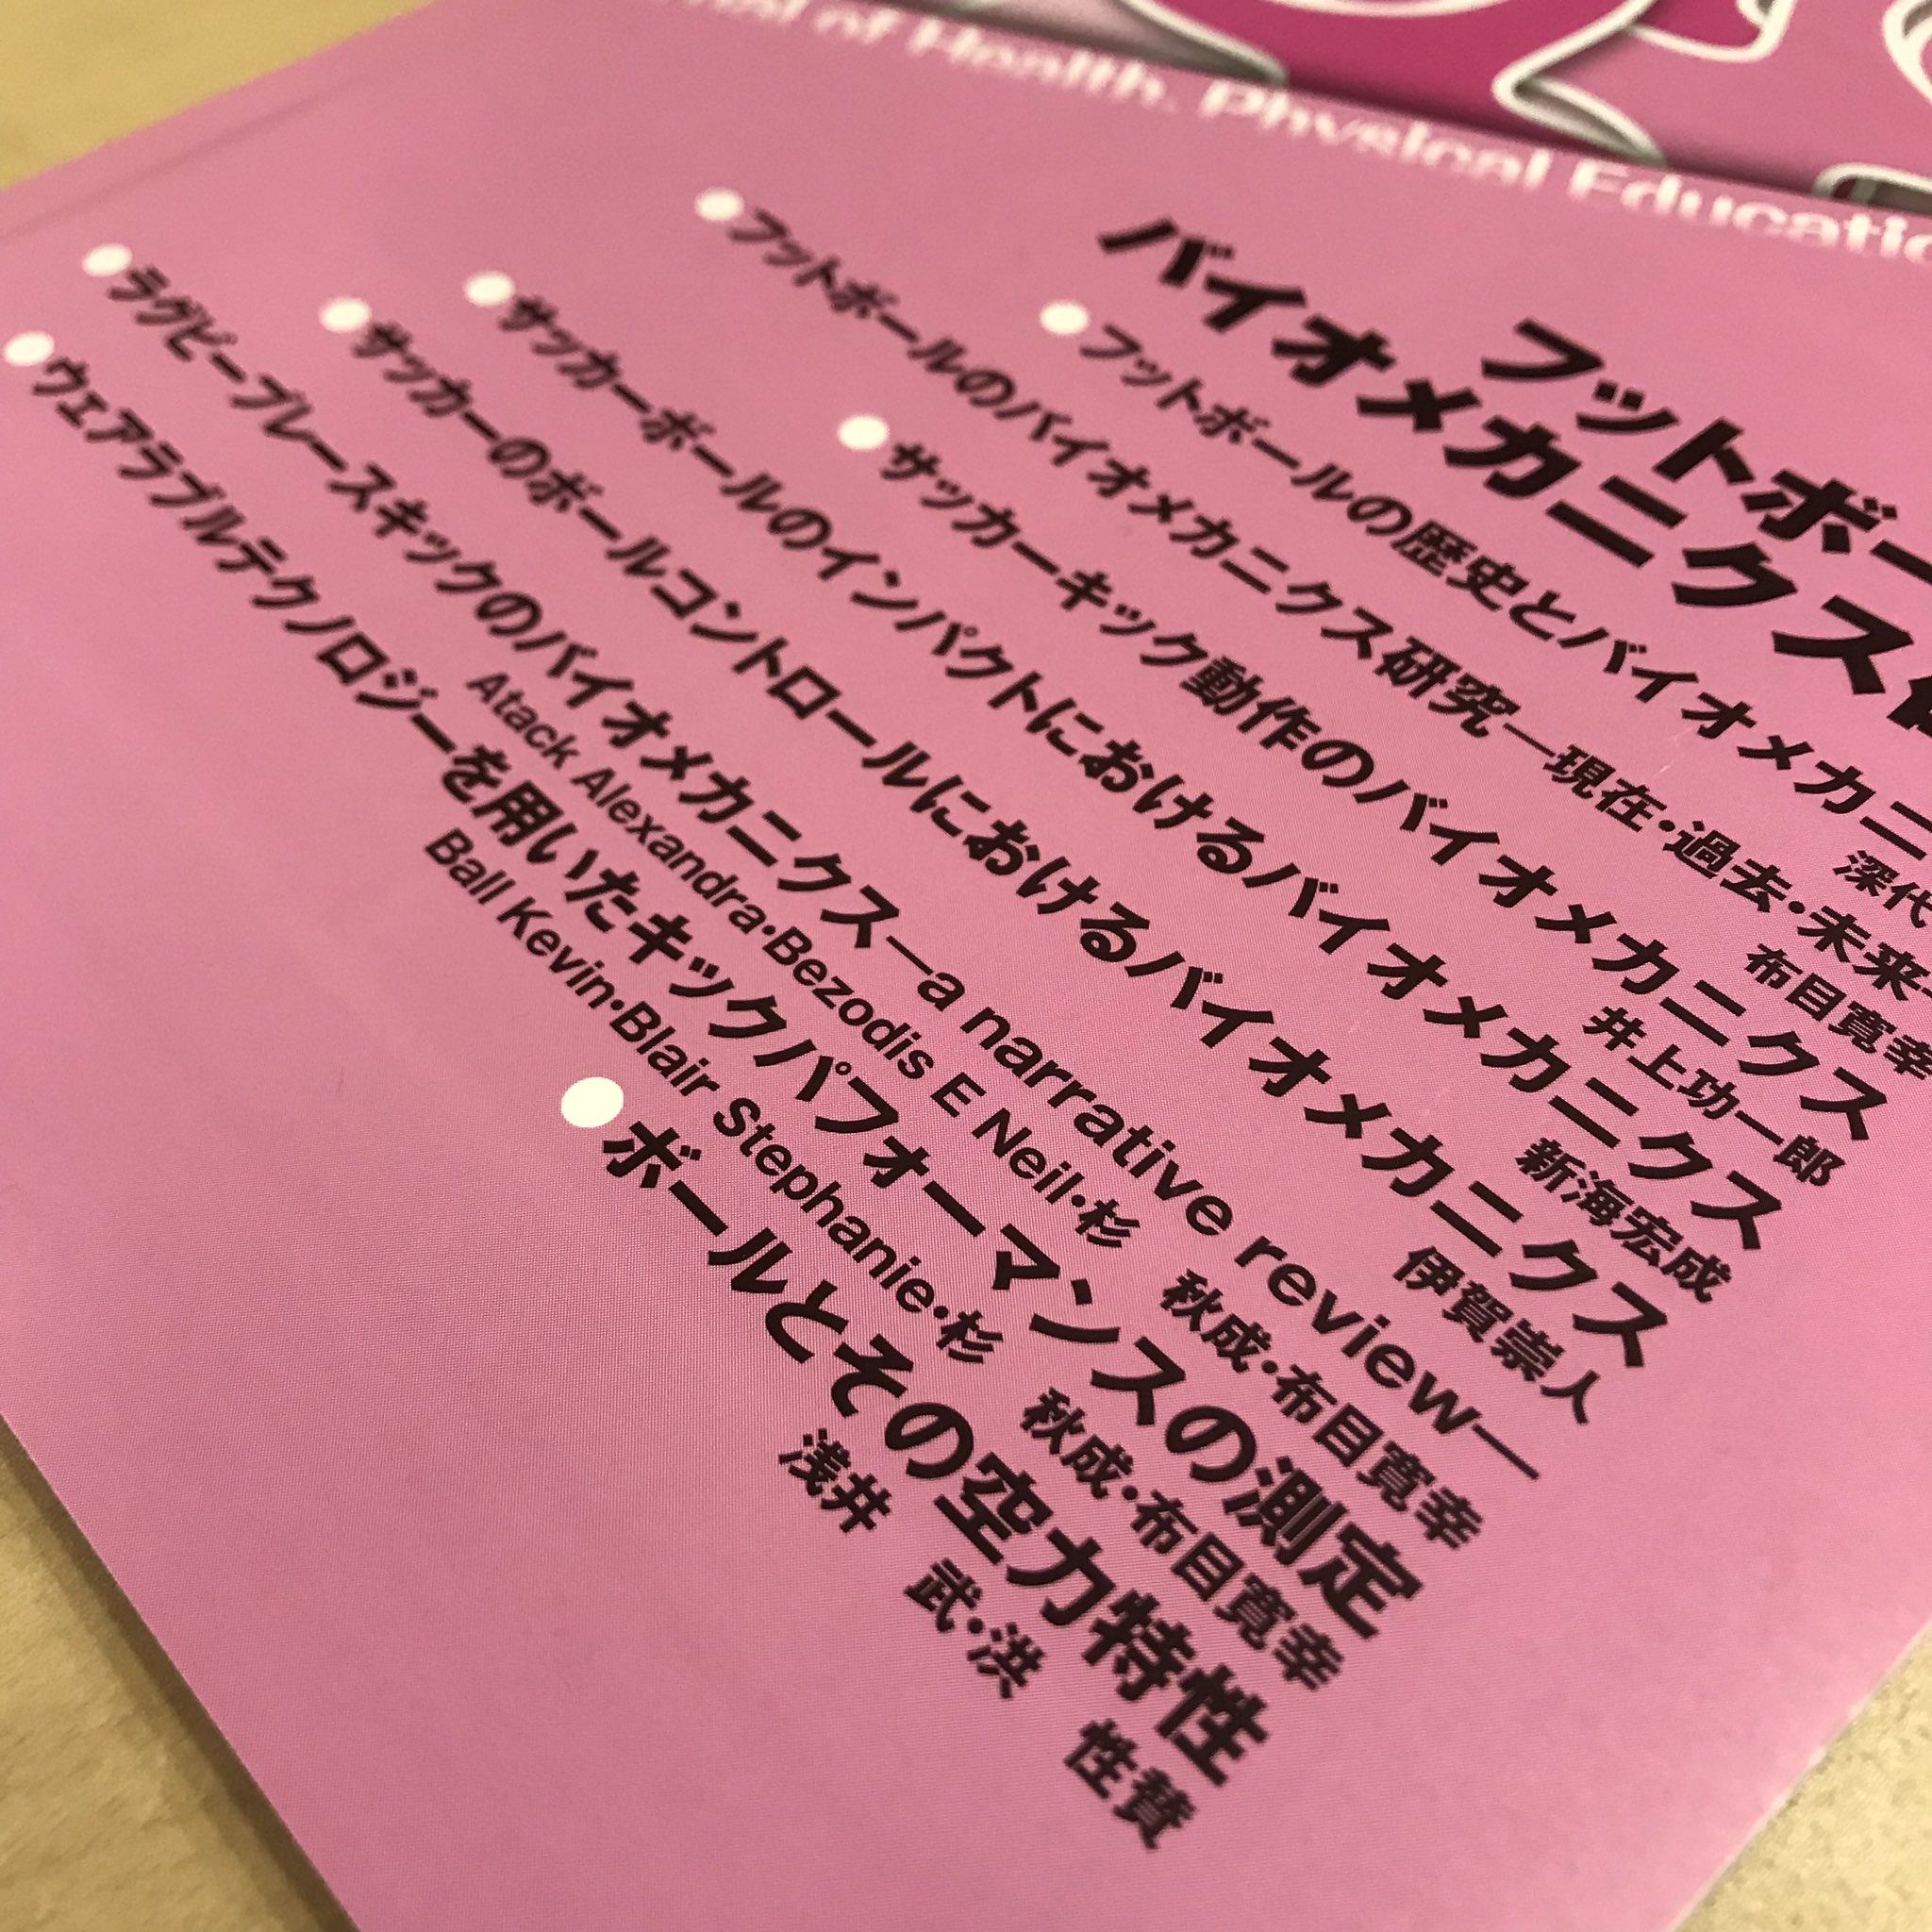 of Health, Physical Educatio
フットボー
バイオメカニクス
●フットボールの歴史とバイオメカニ
深代
●フットボールのバイオメカニクス研究―現在・過去・未来
布目寛幸
●サッカーキック動作のバイオメカニクス
井上功一郎
●サッカーボールのインパクトにおけるバイオメカニクス
新海宏成
●サッカーのボールコントロールにおけるバイオメカニクス
伊賀崇人
●ラグビープレースキックのバイオメカニクス―a narrative review―
Atack Alexandra・Bezodis E Neil・杉 秋成・布目寛幸
●ウェアラブルテクノロジーを用いたキックパフォーマンスの測定
Ball Kevin・Blair Stephanie・杉 秋成・布目寛幸
●ボールとその空力特性
浅井 武・洪 性賛